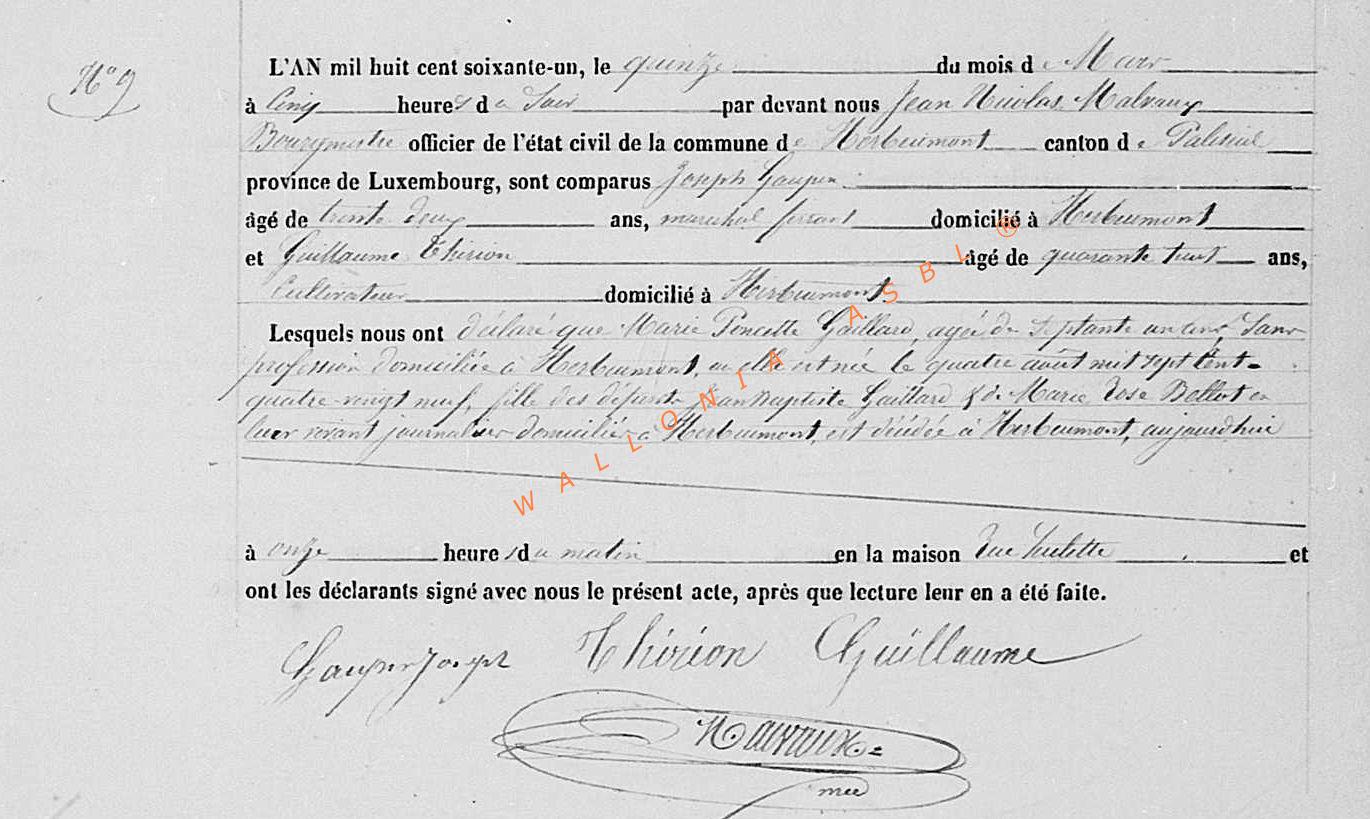 N° 9
L'AN mil huit cent soixante-un, le quinze du mois de Mars
à Cinq heures du Soir par devant nous Jean Nicolas Malvaux
Bourgmestre officier de l'état civil de la commune de Herbeumont canton de Paliseul
province de Luxembourg, sont comparus Joseph Gaupin
âgé de trente deux ans, maréchal ferrant domicilié à Herbeumont
et Guillaume Thirion âgé de quarante huit ans,
Cultivateur domicilié à Herbeumont
Lesquels nous ont déclaré que Marie Poncette Gaillard, agée de Septante un ans, Sans
profession domiciliée à Herbeumont, ou elle est née le quatre août mil sept Cent-
quatre vingt neuf, fille des défunts Jean Baptiste Gaillard & de Marie Rose Bellot en
leur vivant journaliers domiciliés à Herbeumont, est décédée à Herbeumont, aujourd'hui
à onze heures du matin en la maison Rue et
ont les déclarants signé avec nous le présent acte, après que lecture leur en a été faite.
Joseph Thirion Guillaume
Malvaux
WALLONIA ASBL ®